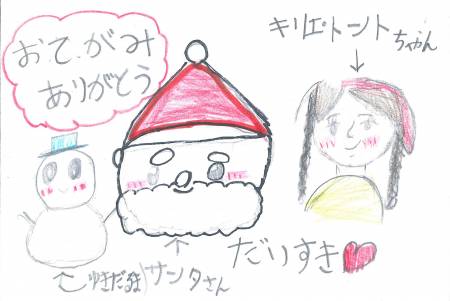 おてがみ
ありがとう
キリエ・トントちゃん
ゆきだるま
サンタさん
だいすき